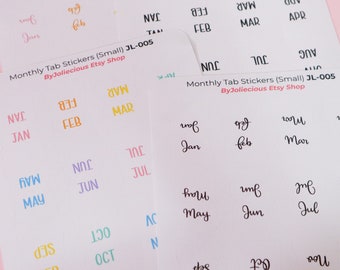 JAN FEB MAR
JAN FEB MAR
Jan
Monthly Tab Stickers (Small) JL-005
ByJoliecious Etsy Shop
JAN FEB MAR
JAN FEB MAR
MAY JUN JUL
MAY JUN JUL
SEP OCT
SEP OCT
Monthly Tab Stickers (Small) JL-005
ByJoliecious Etsy Shop
Jan Feb Mar
Jan Feb Mar
May Jun Jul
May Jun Jul
Sep Oct Nov